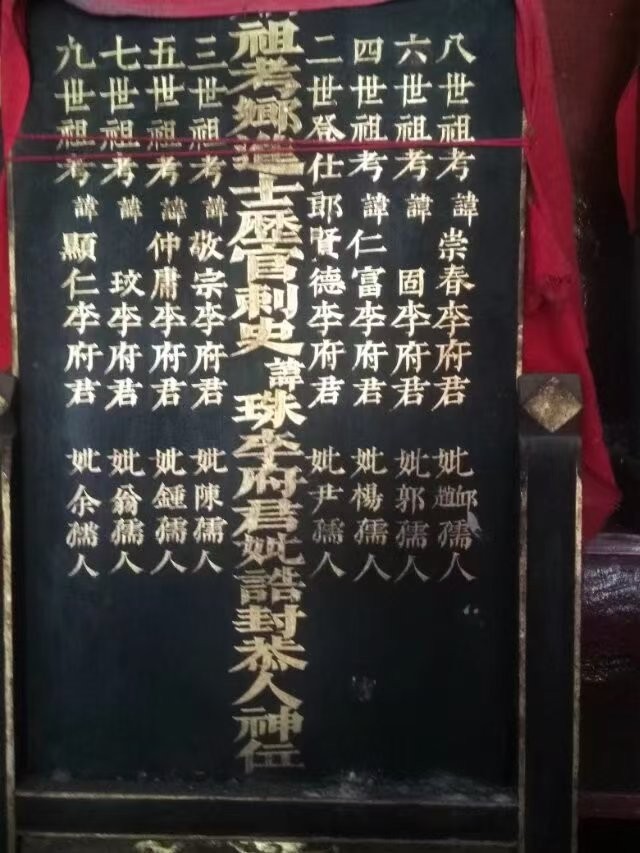 八世祖考諱崇春李府君 妣邱趙孺人
六世祖考諱固李府君 妣郭孺人
四世祖考諱仁富李府君 妣楊孺人
二世登仕郎賢德李府君 妣尹孺人
祖考鄉進士歴官刺史諱珠李府君妣誥封恭人神位
三世祖考諱敬宗李府君 妣陳孺人
五世祖考諱仲庸李府君 妣鍾孺人
七世祖考諱玟李府君 妣翁孺人
九世祖考諱顯仁李府君 妣余孺人